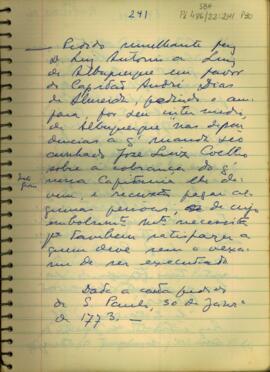 241
SBH
Pt 486/22:241 P90
— Pedido semelhante fez
D. Luiz Antonio a Luiz
de Albuquerque em favor
do Capitão André
de Almeida, pedindo o am-
paro, por seu intermedio,
de Albuquerque "nas depen-
dencias a q' manda seo
cunhado Joze Diniz Coelho
sobre a cobrança do q'
nessa Capitania lhe de-
vem, e recusão pagar al-
gumas pessoas, de cujo
embolso necessita
pª tambem satisfazer a
quem deve sem o vexa-
me de ser executado
Data a carta
de S. Paulo, 30 de Janrº
de 1773. —